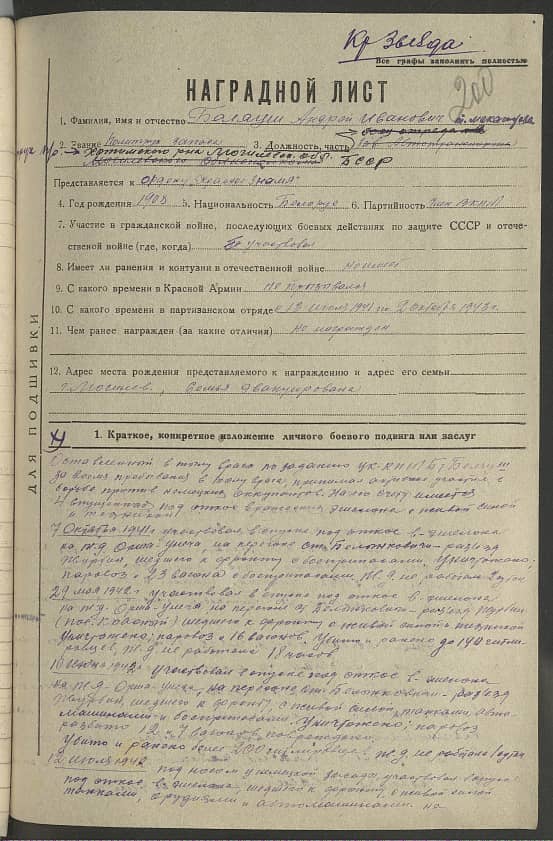 Кр Звезда
Все графы заполнить полностью
200
НАГРАДНОЙ ЛИСТ
1. Фамилия, имя и отчество Балауш Андрей Иванович
2. Звание Политрук запаса 3. Должность, часть
Хотимского р-на Могилевск. обл. БССР
Представляется к ордену "Красное Знамя"
4. Год рождения 1908 5. Национальность Белорус 6. Партийность член ВКП(б)
7. Участие в гражданской войне, последующих боевых действиях по защите СССР и отече-
ственной войне (где, когда) участвовал
8. Имеет ли ранения и контузии в отечественной войне не имеет
9. С какого времени в Красной Армии не призывался
10. С какого времени в партизанском отряде с 13 июля 1941 по 2 октября 1943 г.
11. Чем ранее награжден (за какие отличия) не награжден
12. Адрес места рождения представляемого к награждению и адрес его семьи
г. Могилев, Семья эвакуирована
ДЛЯ ПОДШИВКИ
1. Краткое, конкретное изложение личного боевого подвига или заслуг
Оставленный в тылу врага по заданию ЦК КП(б)Б т.
за время пребывания в тылу врага, принимал активное участие в
борьбе против немецких оккупантов. На его счету имеется
4 спущенных под откос вражеских эшелона с живой силой
и техникой.
7 Октября 1941 г. участвовал в спуске под откос в-эшелона
на ж.д. Орша-Унеча, на перегоне ст. разъезд
шедшего к фронту с боеприпасами. Уничтожено:
паровоз и 23 вагона с боеприпасами. Ж.д. не работала
29 мая 1942 г. участвовал в спуске под откос в-эшелона
на ж.д. Орша-Унеча, на перегоне ст. разъезд
шедшего к фронту с живой силой и техникой
Уничтожено: паровоз и 16 вагонов. Убито и ранено до 140 гитле-
ровцев, ж.д. не работала 18 часов.
10 июня 1942 г. участвовал в спуске под откос в-эшелона
на ж.д. Орша-Унеча, на перегоне ст. разъезд
шедшего к фронту с живой силой, танками, авто-
машинами и боеприпасами. Уничтожено: паровоз
разбито 12 вагонов
Убито и ранено более 200 гитлеровцев, ж.д. не работала
12 июля 1942 под носом у немецкой засады, участвовал в спуске
под откос в-эшелона, шедшего к фронту с живой силой
танками, орудиями и автомашинами. на